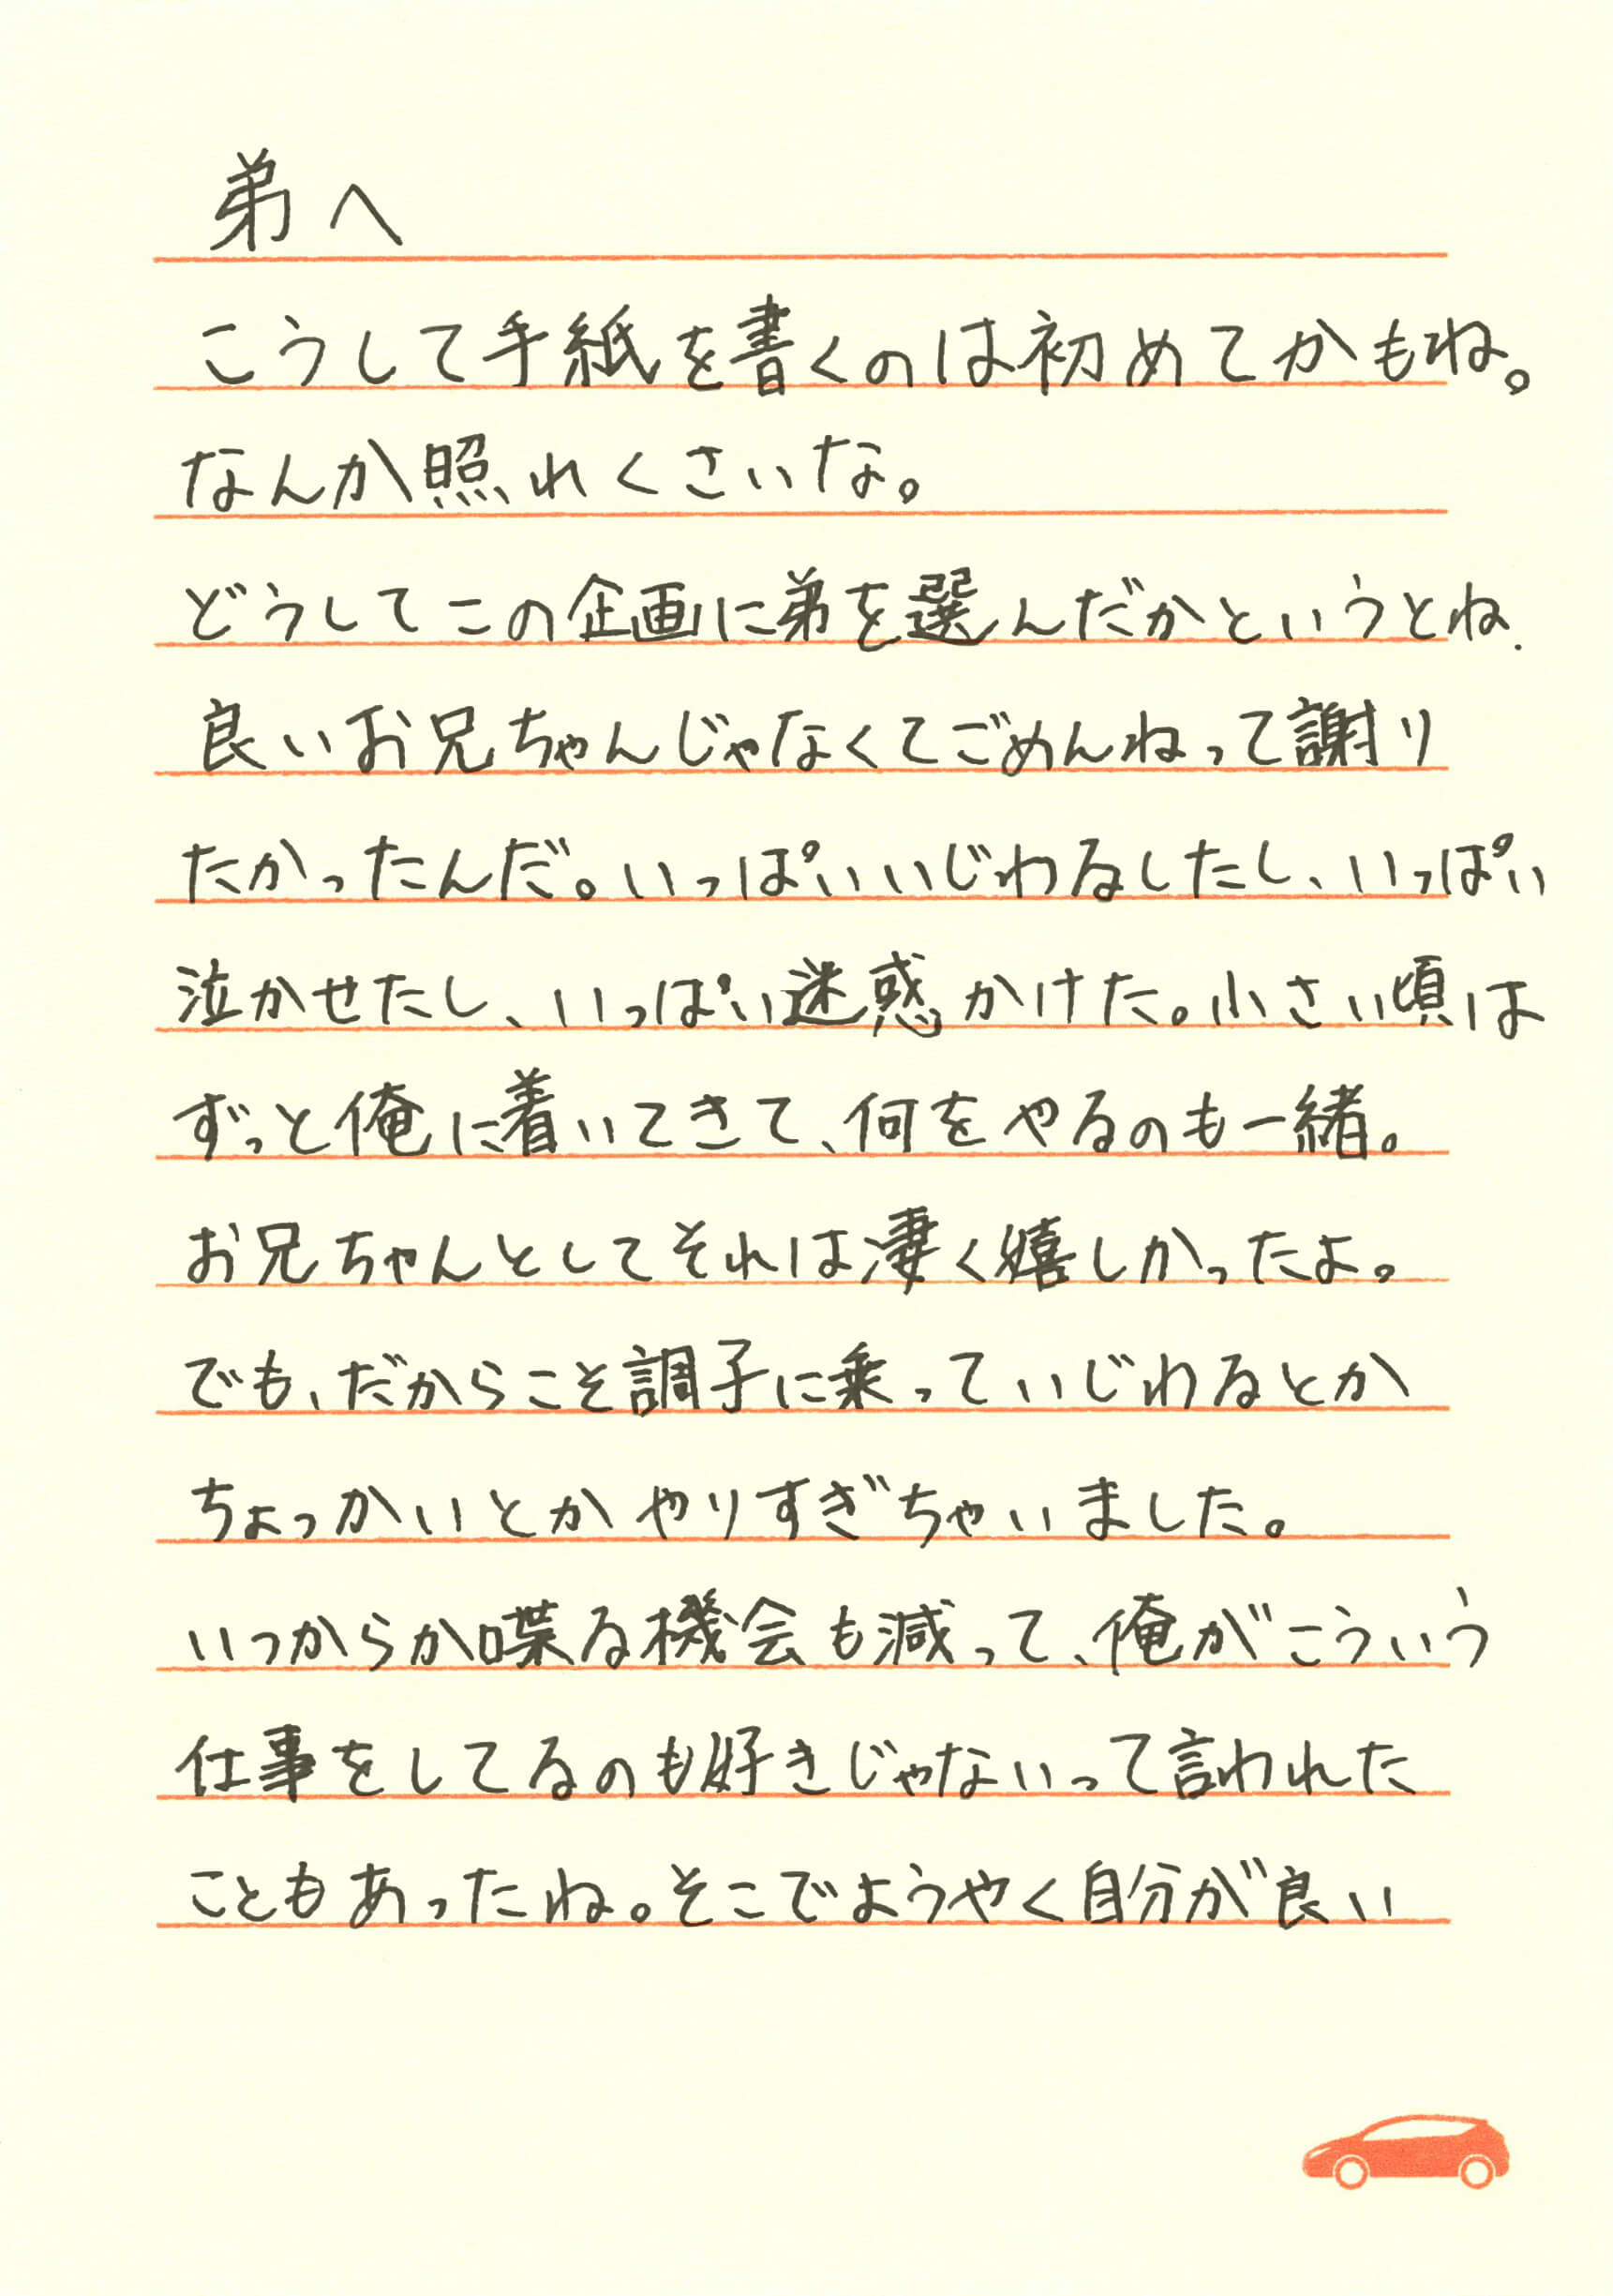 弟へ
こうして手紙を書くのは初めてかもね。
なんか照れくさいな。
どうしてこの企画に弟を選んだかというとね、
良いお兄ちゃんじゃなくてごめんねって謝り
たかったんだ。いっぱいいじわるしたし、いっぱい
泣かせたし、いっぱい迷惑かけた。小さい頃は
ずっと俺に着いてきて、何をやるのも一緒。
お兄ちゃんとしてそれは凄く嬉しかったよ。
でも、だからこそ調子に乗っていじわるとか
ちょっかいとかやりすぎちゃいました。
いつからか喋る機会も減って、俺がこういう
仕事をしてるのも好きじゃないって言われた
こともあったね。そこでようやく自分が良い